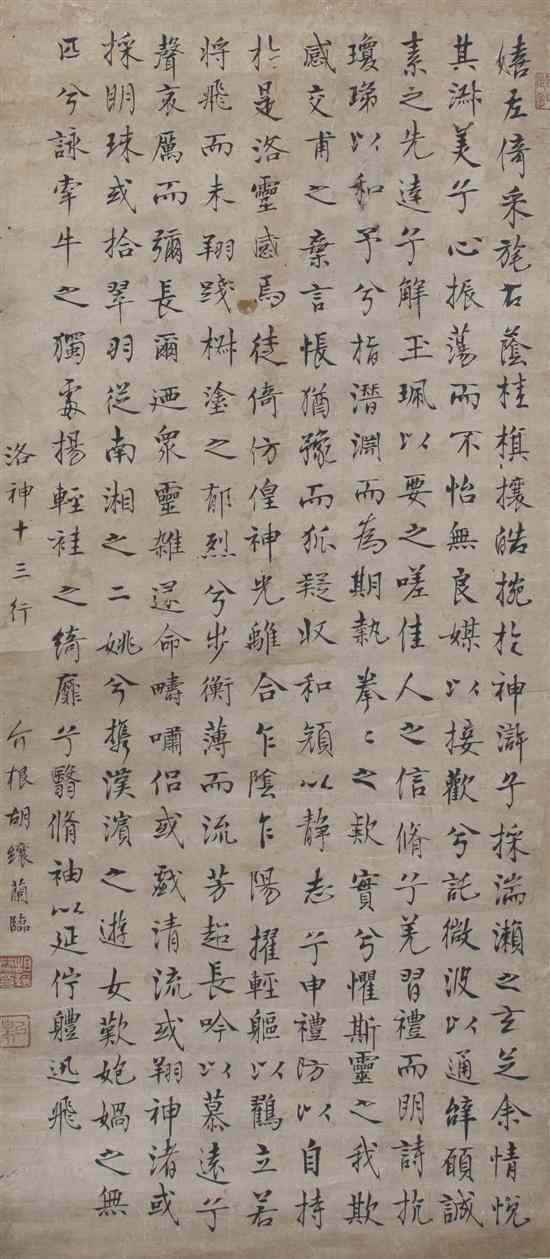 嬉左倚采旄右蔭桂旗攘皓捥於神滸兮採湍瀨之玄芝余情悅
其淑美兮心振蕩而不怡無良媒以接歡兮託微波以通辭願誠
素之先達兮解玉珮以要之嗟佳人之信脩兮羌習禮而明詩抗
瓊珶以和予兮指潛淵而為期執拳〻之欵實兮懼斯靈之我欺
感交甫之棄言悵猶豫而狐疑收和顏以靜志兮申禮防以自持
於是洛靈感焉徙倚仿偟神光離合乍陰乍陽擢輕軀以鶴立若
將飛而未翔踐椒塗之郁烈兮步衡薄而流芳超長吟以慕遠兮
聲哀厲而彌長爾迺眾靈雜遝命疇嘯侶或戲清流或翔神渚或
採明珠或拾翠羽從南湘之二姚兮攜漢濱之遊女歎匏媧之無
匹兮詠牽牛之獨處揚輕袿之綺靡兮翳脩袖以延佇體迅飛
洛神十三行
介根胡纕蘭臨